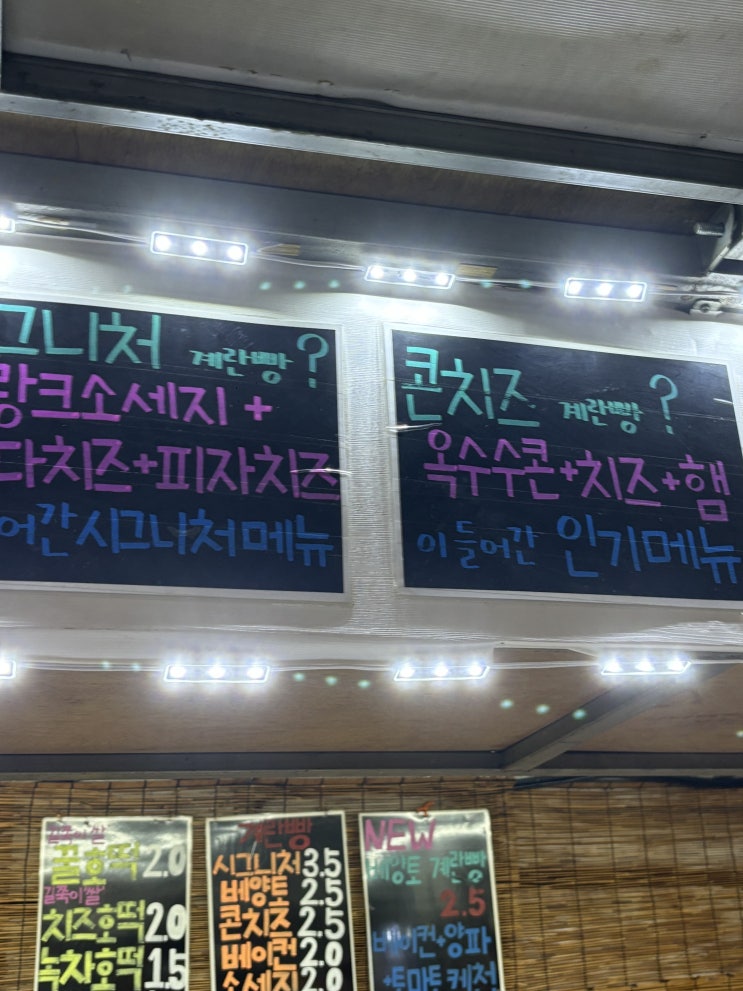 그니처 계란빵?
랑크소세지+
다치즈+피자치즈
어간 시그니처메뉴
콘치즈 계란빵?
옥수수콘+치즈+햄
이 들어간 인기메뉴
꿀호떡 2.0
길쭉이"쌀"
치즈호떡 2.0
녹차호떡 1.5
계란빵
시그니처 3.5
베양토 2.5
콘치즈 2.5
베이컨 2.0
소세지 2.0
NEW
베양토 계란빵
2.5
베이컨+양파
+토마토케첩